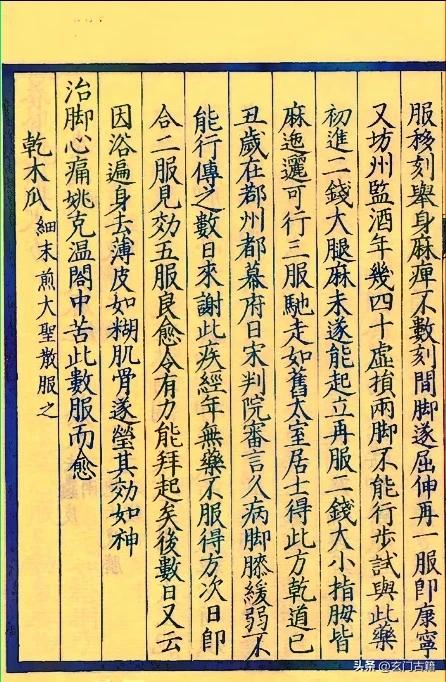 服移刻舉身麻痺不數刻間脚遂屈伸再一服即康寧
又坊州監酒年幾四十虛損兩脚不能行步試與此藥
初進二錢大腿麻未遂能起立再服二錢大小指拇皆
麻迤邐可行三服馳走如舊太室居士得此方乾道己
丑歲在鄀州都幕府日宋判院審言久病脚膝緩弱不
能行傳之數日來謝此疾經年無藥不服得方次日即
合二服見効五服良愈今有力能拜起矣後數日又云
因浴遍身去薄皮如糊肌骨遂瑩其効如神
治脚心痛姚克温閤中苦此數服而愈
乾木瓜 細末煎大聖散服之
头条 @玄门古籍